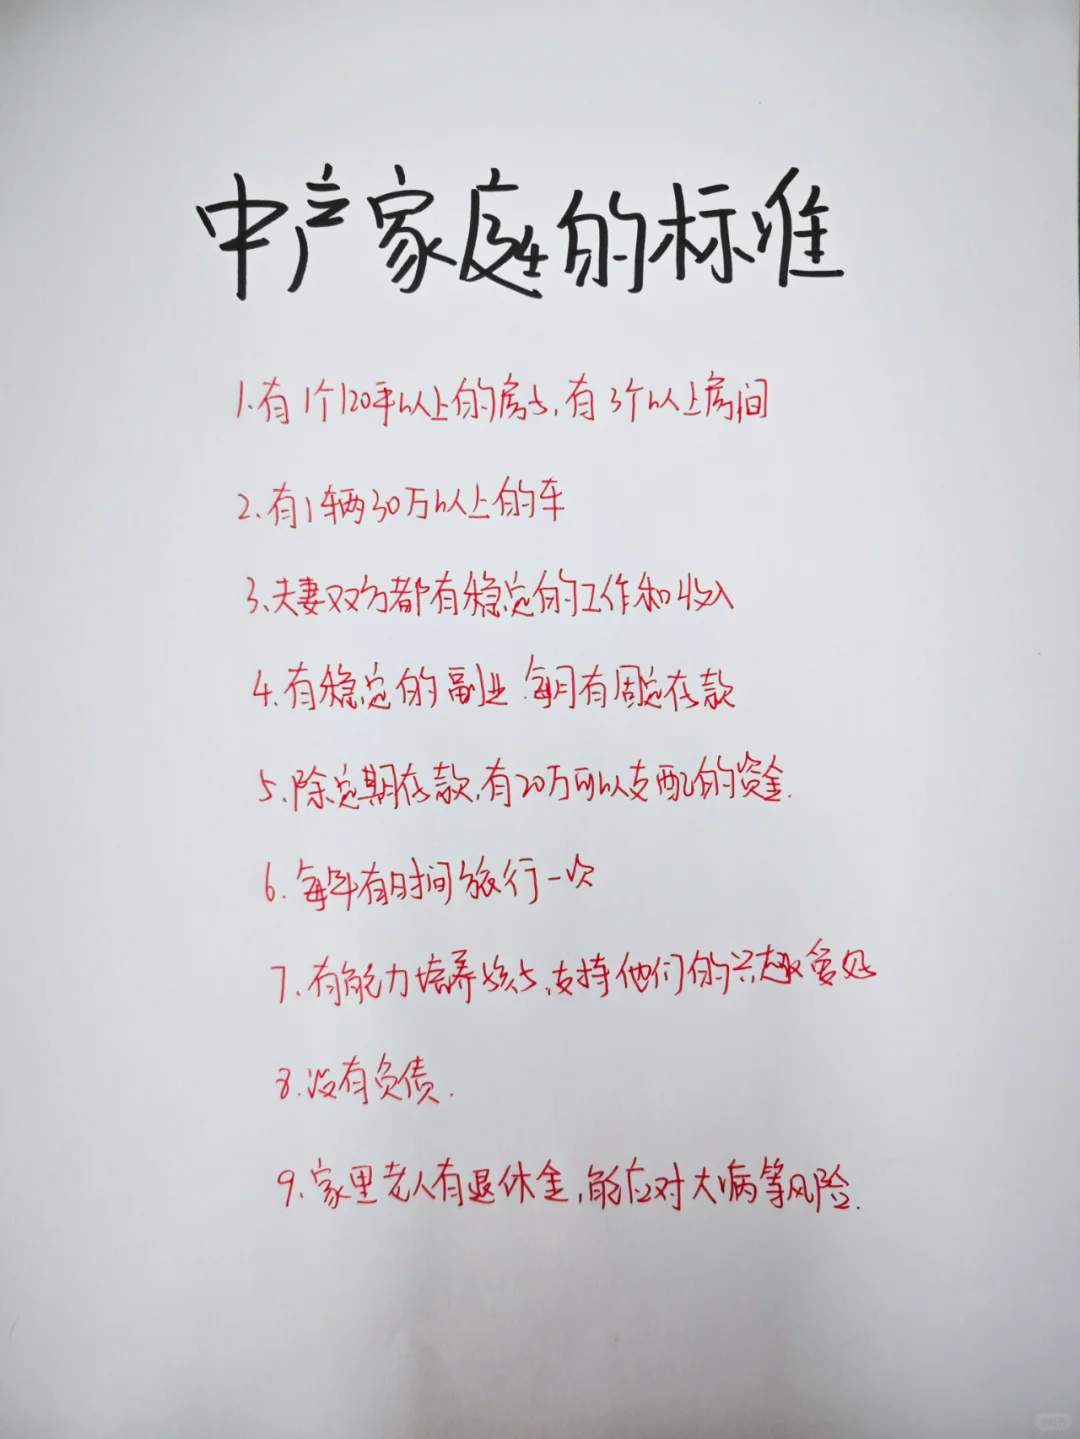 中产家庭的标准
1.有1个120平以上的房子,有3个以上房间
2.有1辆30万以上的车
3.夫妻双方都有稳定的工作和收入
4.有稳定的副业 每月有固定存款
5.除定期存款,有20万可以支配的资金.
6.每年有时间旅行一次
7.有能力培养孩子,支持他们的兴趣爱好
8.没有负债.
9.家里老人有退休金,能应对大病等风险.